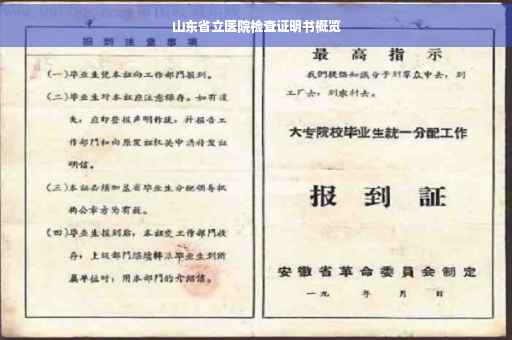 山东省立医院检查证明书概览
报到注意事项
(一)毕业生凭本证向工作部門报到。
(二)毕业生对本证应注意保存。如有遗
失,应即登报声明作废,并报告工
作部門和向原发证机关申請补发证
明信。
(三)本证必须加盖省毕业生分配领导机
构公章方为有效。
(四)毕业生报到后,本证交工作部門收
存;上级部門
毕业生到所
属单位时,用本部門的介绍信。
最高指示
我們提倡知識分子到羣众中去,到
工厂去,到农村去。
大专院校毕业生統一分配工作
报到証
安徽省革命委員会制定
一九 年 月 日